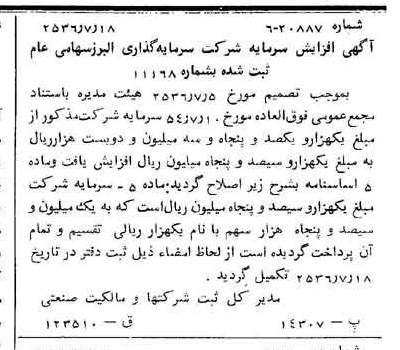 شماره ۲۰۸۸۷-۶ ۲۵۳۶/۷/۱۸
آگهی افزایش سرمایه شرکت سرمایه‌گذاری البرزسهامی عام
ثبت شده بشماره ۱۱۱۶۸
بموجب تصمیم مورخ ۲۵۳۶/۷/۵ هیئت مدیره باستناد
مجمع‌عمومی فوق‌العاده مورخ ۵۴/۷/۱۰ سرمایه شرکت‌مذکور از
مبلغ یکهزارو یکصد و پنجاه و سه میلیون و دویست هزارریال
به مبلغ یکهزارو سیصد و پنجاه میلیون ریال افزایش یافت وماده
۵ اساسنامه بشرح زیر اصلاح گردید:ماده ۵ ـ سرمایه شرکت
مبلغ یکهزارو سیصد و پنجاه میلیون ریال‌است که به یک میلیون و
سیصد و پنجاه هزار سهم با نام یکهزار ریالی تقسیم و تمام
آن پرداخت گردیده است از لحاظ امضاء ذیل ثبت دفتر در تاریخ
۲۵۳۶/۷/۱۸ تکمیل گردید .
مدیر کل ثبت شرکتها و مالکیت صنعتی
پ — ۱۴۳۰۷ ق — ۱۲۳۵۱۰